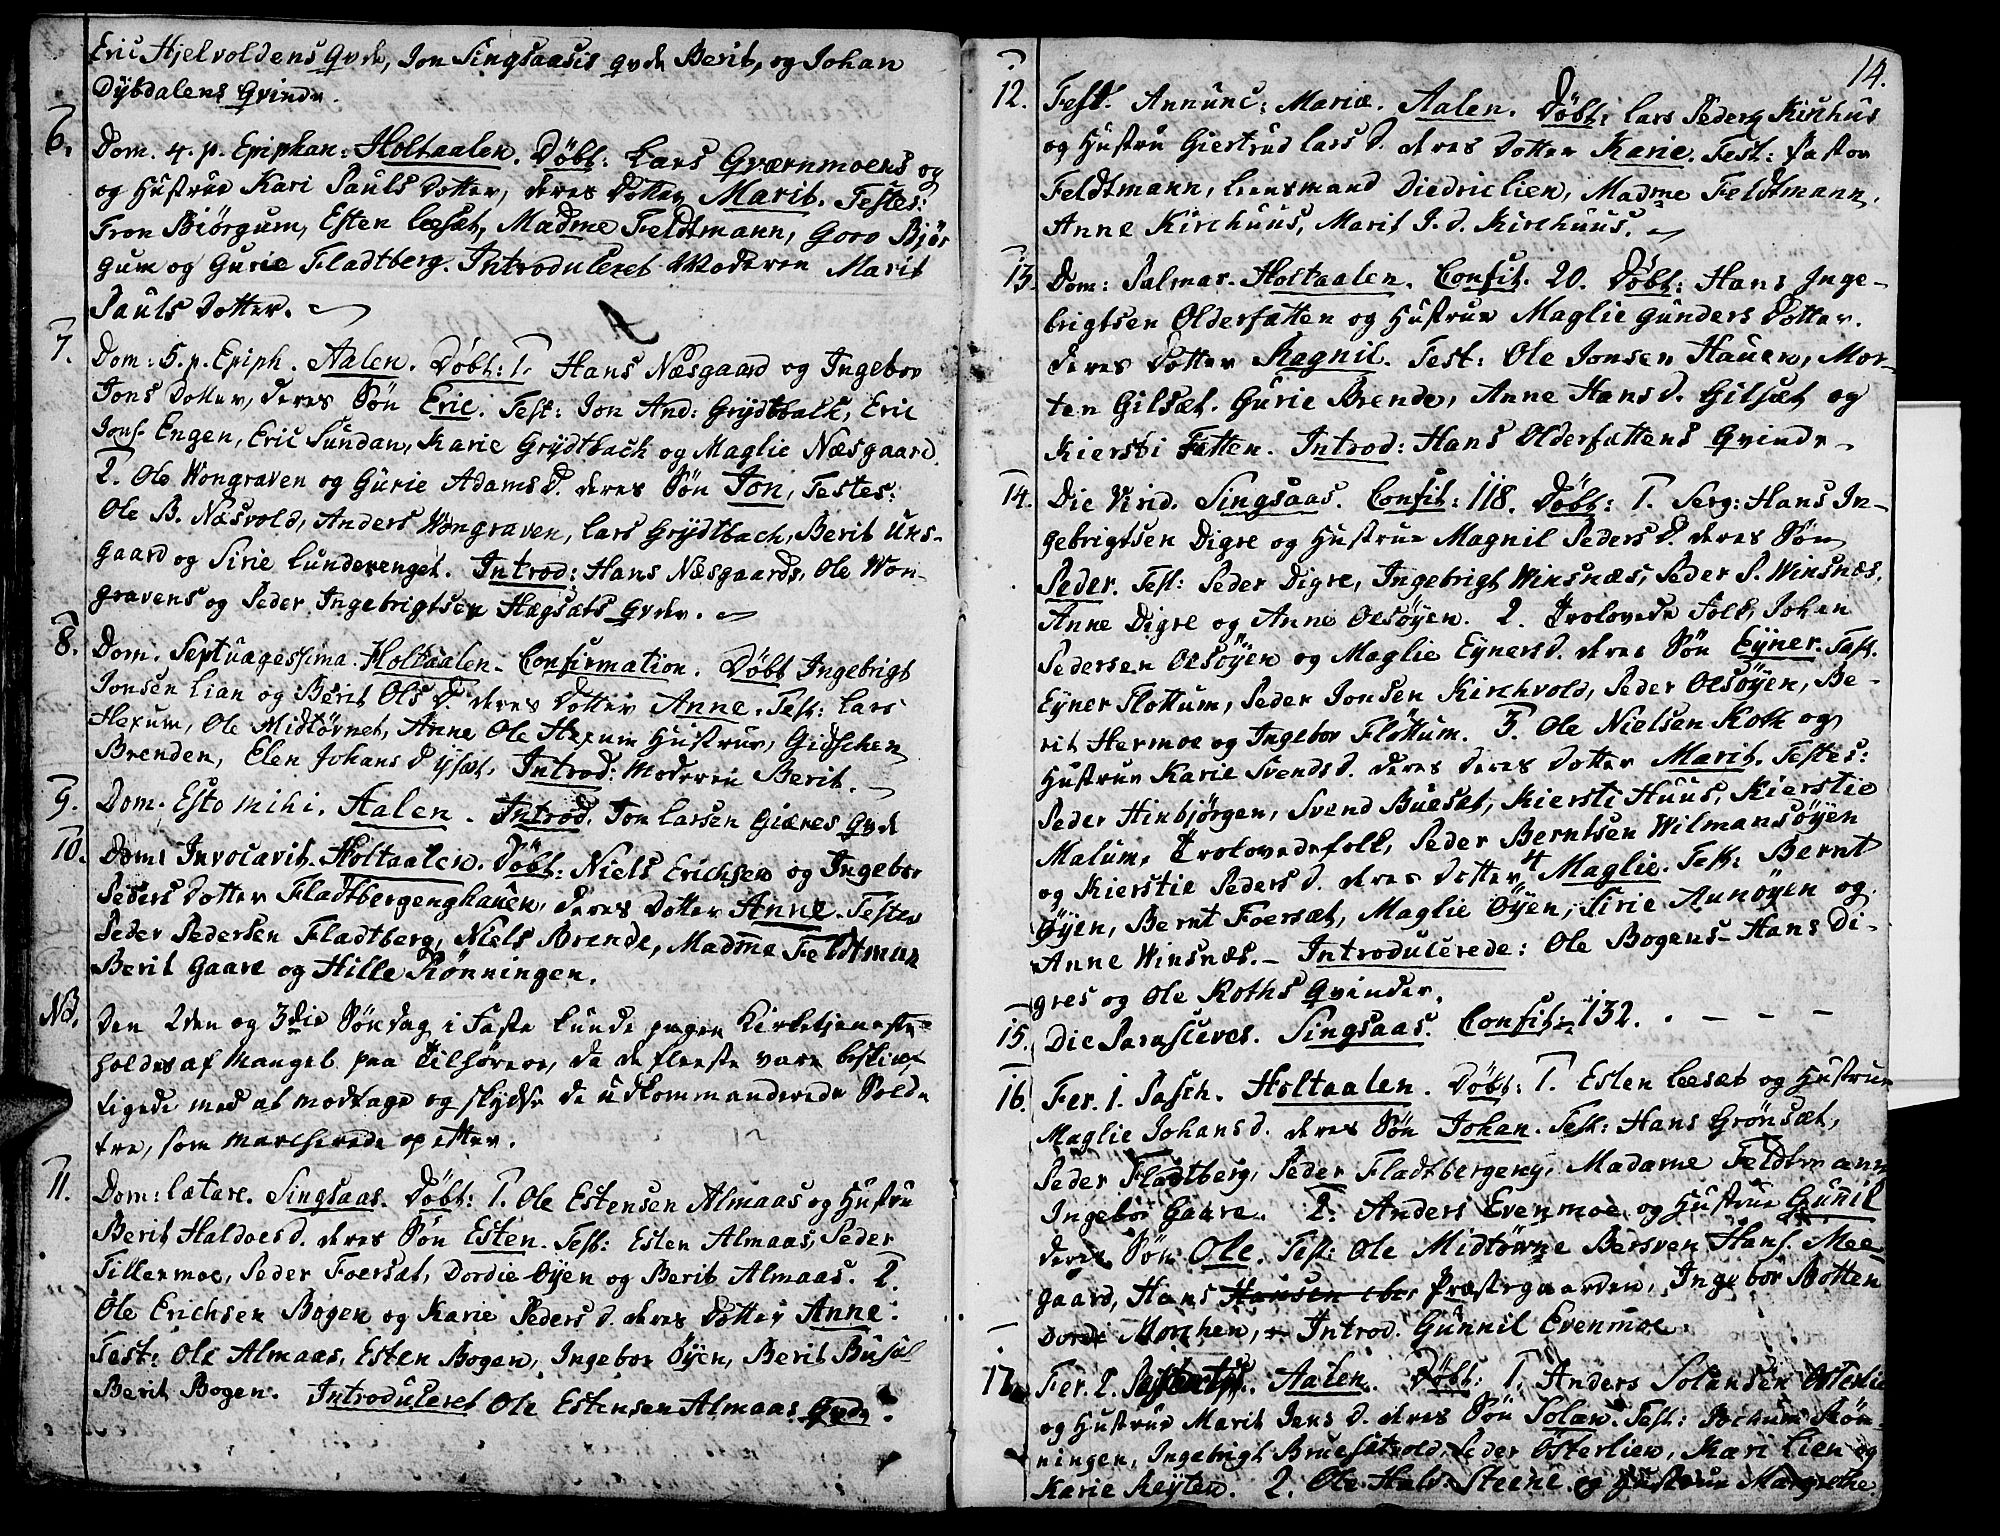 Eric Hjelvoldens Qvde, Jon Singsaasis qvde Berit, og Johan
Dybdalens Qvinde.
6. Dom. 4. p. Epiphan: Holtaalen. Døbt: Lars Qværnmoens og
og Hustrue Kari Pauls Dotter, deres Dotter Marit. Testes:
Tron Biörgum, Esten Leesæt, Madme Feldtmann, Goro Bjør
gum og Gurie Fladtberg. Introduceret Moderen Marit
Pauls Dotter.
7. Dom: 5. p. Epiph. Aalen. Døbt: 1. Hans Næsgaard og Ingebor
Jons Dotter, deres Søn Eric. Test: Jon And: Grÿdtbak, Eric
Jons. Engen, Eric Sundan, Karie Grÿdtbach og Maglie Næsgaard.
2. Ole Wongraven og Gurie Adams D. deres Søn Jon, Testes:
Ole B. Næsvold, Anders Wongraven, Lars Grÿdtbach, Berit Uns-
gaard og Sirie Lunderenget. Introd: Hans Næsgaards, Ole Won-
gravens og Peder Ingebrigtsen Hægsæts Qvder.
8. Dom. Septuagessima. Holtaalen. Confirmation. Døbt Ingebrigt
Jonsen Lian og Berit Ols D. deres Dotter Anne. Test: Lars
Hexum, Ole Midtørnet, Anne Ole Hexum Hustrue, Gidschen
Brenden, Elen Johans D ÿsæt. Introd: Moderen Berit.
9. Dom. Esto mihi. Aalen. Introd. Jon Larsen Giæres Qvde
10. Dom: Invocavit. Holtaalen. Døbt: Niels Erichsen og Ingebor
Peders Dotter Fladtbergenghauen, deres Dotter Anne. Testes
Peder Pedersen Fladtberg, Niels Brende, Madme Feldtman
Berit Gaare og Hille Rønningen.
NB. Den 2den og 3die Søndag i Faste kunde ingen Kirketjeneste
holdes af Mangel paa Tilhørere, da de fleeste vare beskiæf
tigede med at modtage og skydse de udkommanderede Solda
ter, som marcherede op efter.
11. Dom: Lætare. Singsaas. Døbt: 1. Ole Estensen Almaas og Hustru
Berit Haldoes d. deres Søn Esten. Test: Esten Almaas, Peder
Tillermoe, Peder Foersæt, Dordie Øyen og Berit Almaas. 2.
Ole Erichsen Bogen og Karie Peders d. deres Dotter Anne.
Test: Ole Almaas, Esten Bogen, Ingebor Øyen, Berit
Berit Bogen. Introduceret Ole Estensen Almaas Qvde.
14.
12. Fest. Annunc: Mariæ. Aalen. Døbt: Lars Peders Kirchus
og Hustru Giertrud Lars D. deres Dotter Karie. Test: Pastor
Feldtmann, Lensmand Diedric Lien, Madme Feldtmann,
Anne Kirchuus, Marit J. d. Kirchuus.
13. Dom: Palmar. Holtaalen. Confit. 20. Døbt: Hans Inge-
brigtsen Olderfatten og Hustrue Maglie Gunders Dotter.
deres Dotter Magnil. Test: Ole Jonsen Hauen, Mor-
ten Gilsæt. Gurie Brende, Anne Hans d. Gilsæt og
Kiersti Fatten. Introd: Hans Olderfattens Qvinde
14. Die Virid. Singsaas. Confit: 118. Døbt: 1. Serg: Hans In-
gebrigtsen Digre og Hustrue Magnil Peders D. deres Søn
Peder. Test: Peder Digre, Ingebrigt Winsnæs, Peder P. Winsnæs,
Anne Digre og Anne Olsøyen. 2. Trolovede Folk, Johan
Pedersen Olsøÿen og Maglie Eyners d. deres Søn Eyner. Test.
Eyner Flottum, Peder Jonsen Kirchvold, Peder Olsøyen, Be-
rit Hermoe og Ingebor Flottum. 3. Ole Nielsen Roth og
Hustrue Karie Svends d. deres deres Dotter Marit. Testes:
Peder Hinbjørgen, Svend Buesæt, Kiersti Huus, Kierstie
Malum, Trolovedefolk, Peder Berntsen Wilmansøyen
og Kierstie Peders d. deres Dotter 4 Maglie. Test: Bernt
Øyen, Bernt Foersæt, Maglie Øyen, Sirie Aunøyen og
Anne Winsnæs. Introducerede: Ole Bogens Hans Di-
gres og Ole Roths Qvinder.
15. Die Parasceves. Singsaas. Confit: 132.
16. Fer. 1. Pasch. Holtaalen. Døbt: 1. Esten Leesæt og Hustrue
Maglie Johans d. deres Søn Johan. Test: Hans Grønsæt,
Peder Fladtberg, Peder Fladtbergeng, Madame Feldtmann
Ingebor Gaare. 2. Anders Evenmoe og Hustrue Gunil
deres Søn Ole. Test: Ole Midtørne Bersven Hans. Mee
gaard, Hans Hansen Præstegaarden, Ingebor Botten
Dorde Morchen, Introd. Gunnil Evenmoe.
17. Fer. 2. Aalen. Døbt: 1. Anders Solansen Østerlie
og Hustrue Marit Jens d. deres Søn Solan. Test: Jochum Røn-
ningen, Ingebrigt Bruesætvold, Peder Østerlien, Kari Lien og
Karie Reyten. 2. Ole Hald. Steene og Hustrue Margrethe